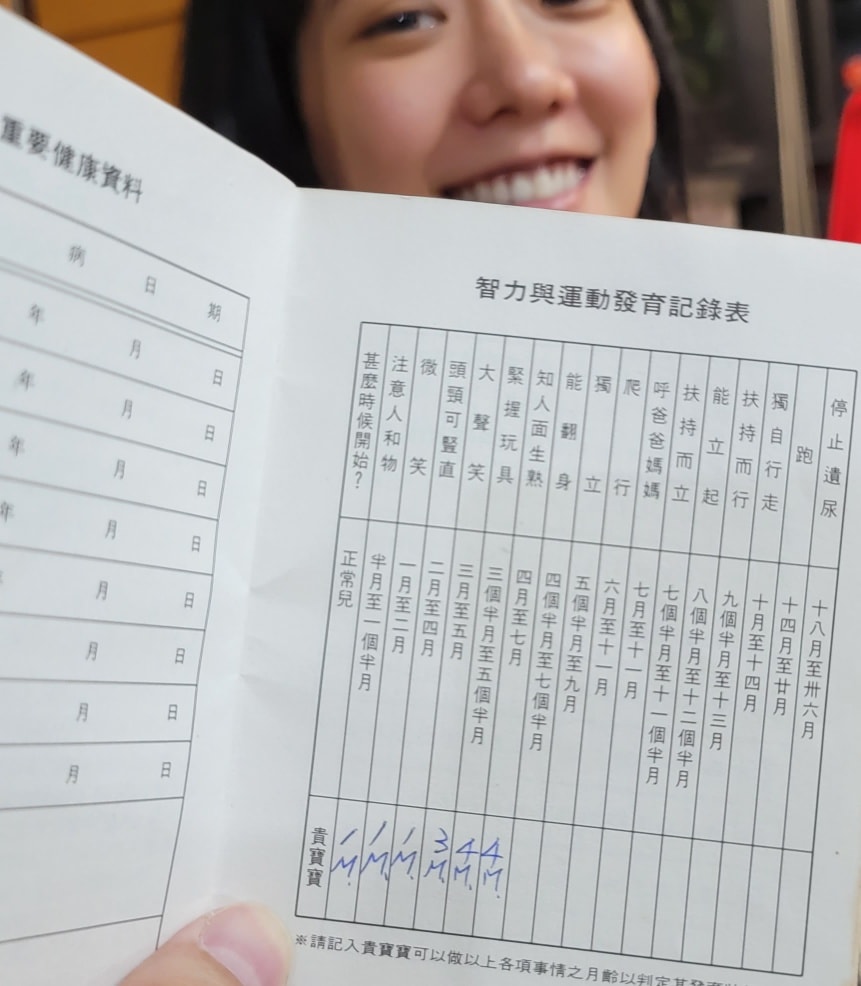 重要健康資料
病 日 期
年 月 日
年 月 日
年 月 日
年 月 日
月 日
月 日
月 日
月 日
智力與運動發育記錄表
甚麼時候開始？ 正常兒 貴寶寶
注意人和物 半月至一個半月 1M.
微笑 一月至二月 1M.
頭頸可豎直 二月至四月 1M.
大聲笑 三月至五月 3M.
緊握玩具 三個半月至五個半月 4M.
知人面生熟 四月至七月 4M.
能翻身 四個半月至七個半月
獨立 五個半月至九月
爬行 六月至十一月
呼爸爸媽媽 七月至十一月
扶持而立 七個半月至十一個半月
能立起 八個半月至十二個半月
扶持而行 九個半月至十三月
獨自行走 十月至十四月
跑 十四月至廿月
停止遺尿 十八月至卅六月
※請記入貴寶寶可以做以上各項事情之月齡以判定其發育